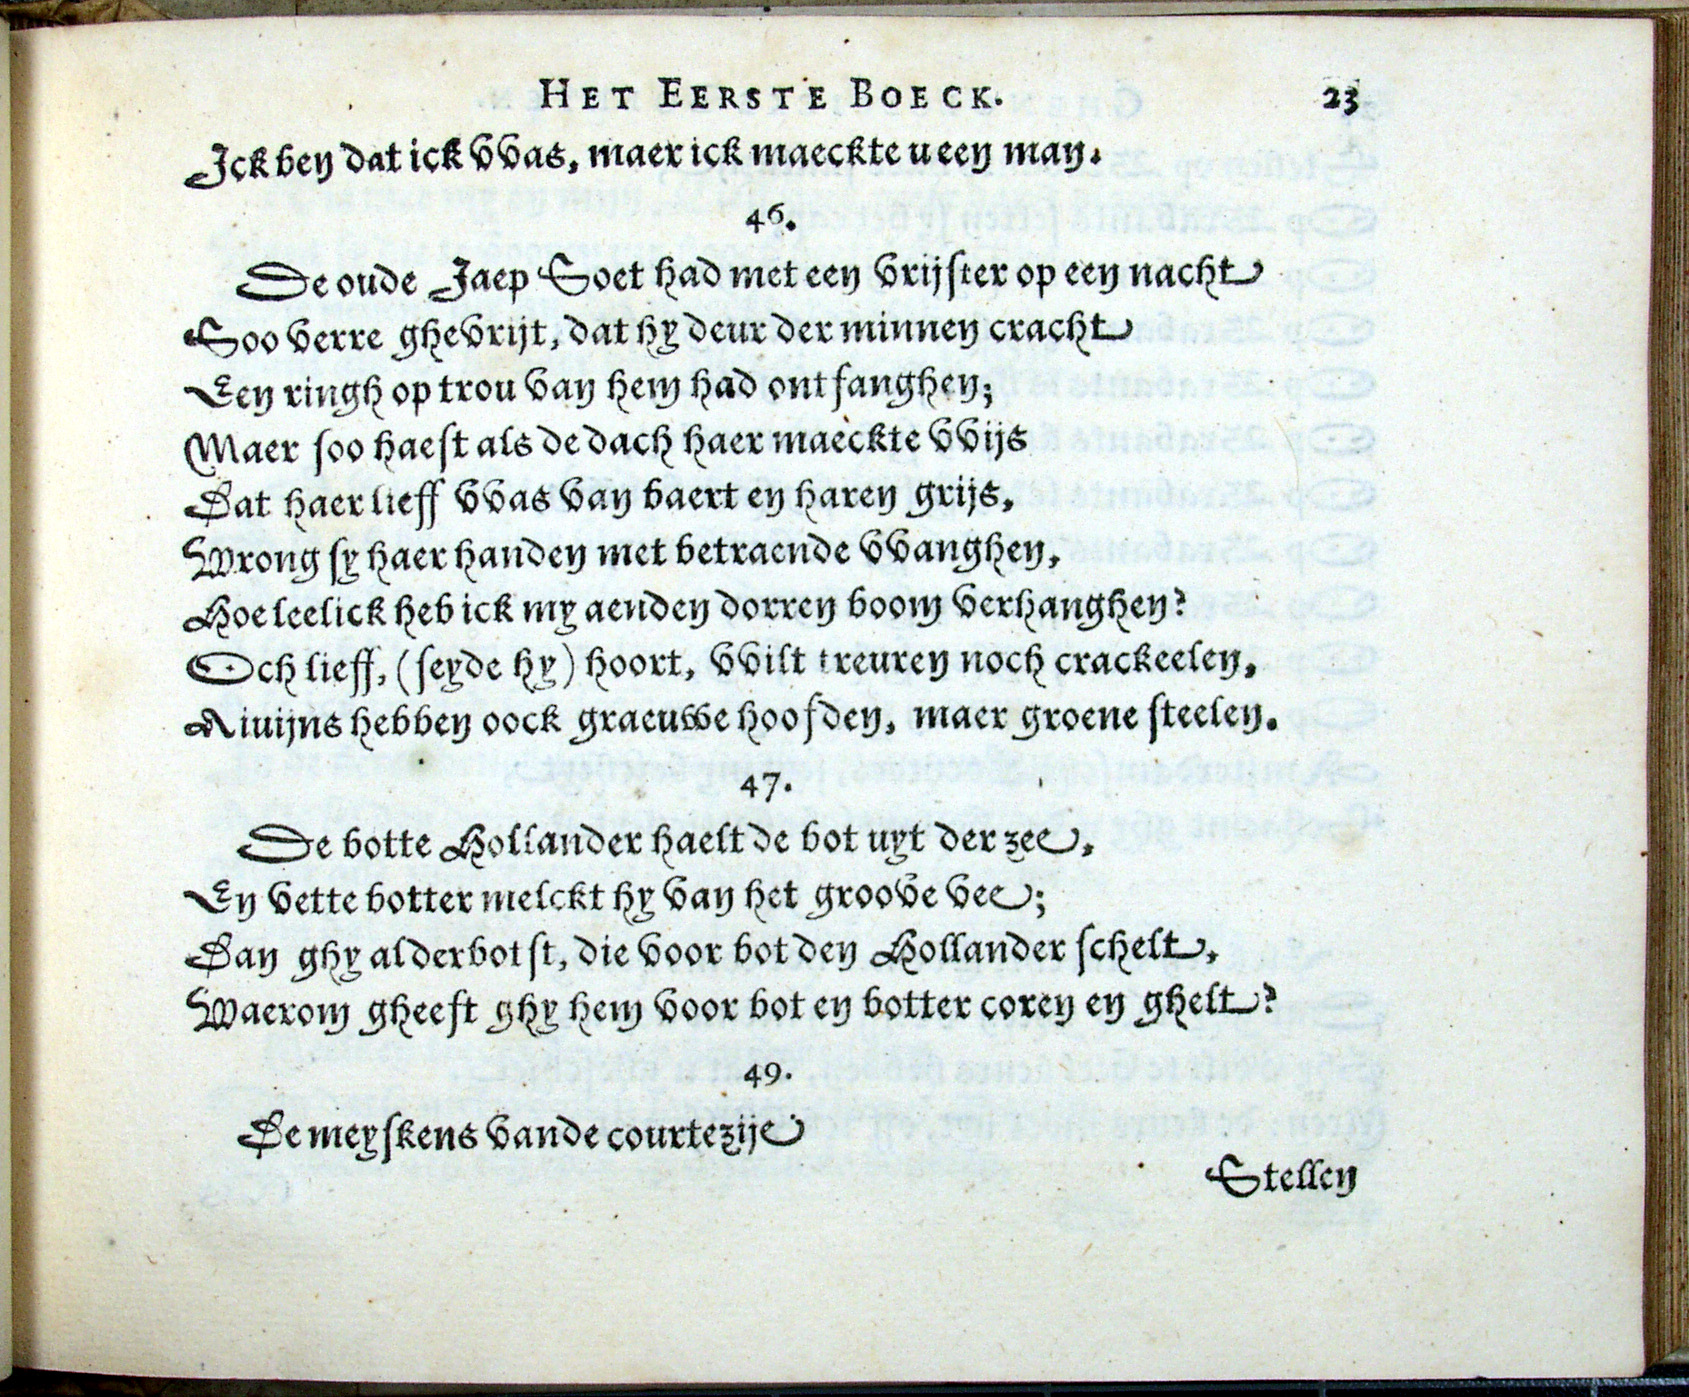 HET EERSTE BOECK. 23
Ick ben dat ick vvas, maer ick maeckte u een man.
46.
De oude Jaep Soet had met een vrijster op een nacht
Soo verre ghevrijt, dat hy deur der minnen cracht
Een ringh op trou van hem had ontfanghen;
Maer soo haest als de dach haer maeckte vvijs
Dat haer lieff vvas van baert en haren grijs,
Wrong sy haer handen met betraende vvanghen,
Hoe leelick heb ick my aenden dorren boom verhanghen?
Och lieff, (seyde hy) hoort, vvilt treuren noch crackeelen,
Aiuijns hebben oock graeuwe hoofden, maer groene steelen.
47.
De botte Hollander haelt de bot uyt der zee,
En vette botter melckt hy van het groove vee;
Dan ghy alderbotst, die voor bot den Hollander schelt,
Waerom gheeft ghy hem voor bot en botter coren en ghelt?
49.
De meyskens vande courtezije
Stellen